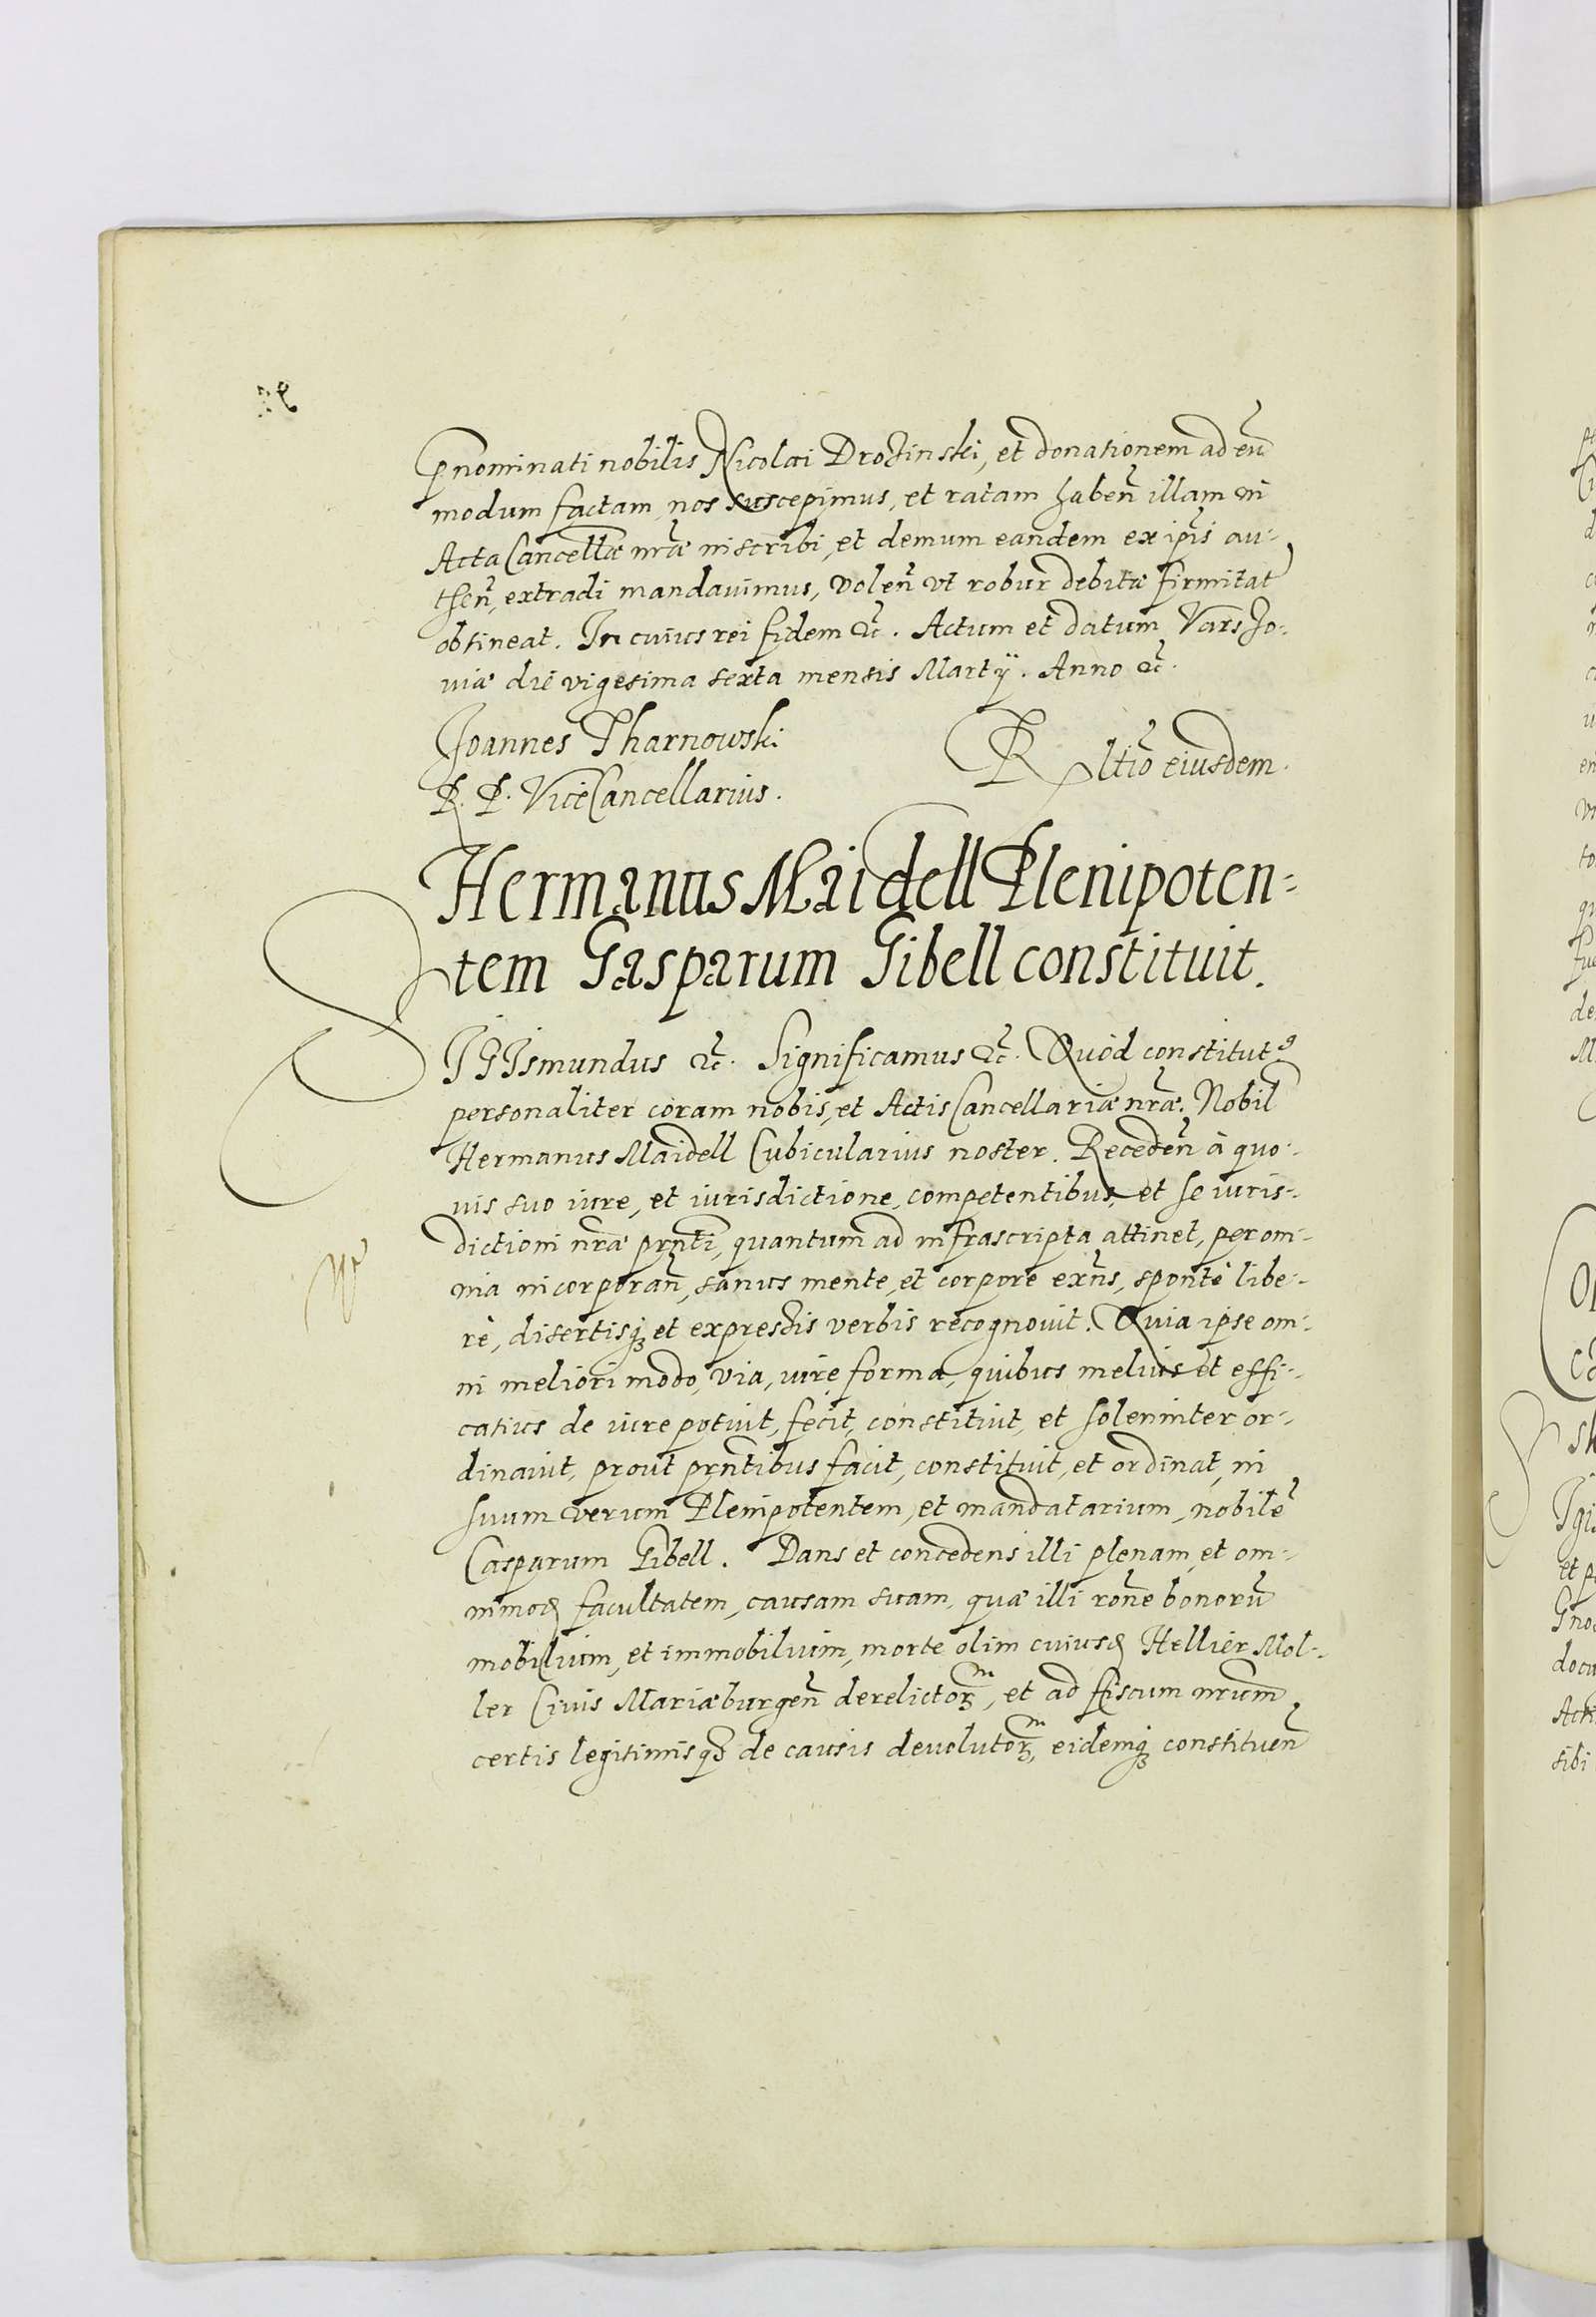 pnominati nobilis Nicolai Drozinski, et donationem ad eū
modum factam, nos suscepimus, et ratam haben̄ illam in
Acta Cancellæ nr̄æ inscribi, et demum eandem ex ip̄is au-
then̄, extradi mandauimus, volen̄ vt robur debitæ firmitat
obtineat. In cuius rei fidem &c̄. Actum et datum Varsso-
uiæ die vigesima sexta mensis Martÿ. Anno &c̄.
Joannes Tharnowski
R. P. ViceCancellarius.
R ltiō eiusdem.
Hermanus Maidell Plenipoten=
tem Gasparum Gibell constituit.
SIGIsmundus &c̄. Significamus &c̄. Quòd constitutꝰ
personaliter coram nobis, et Actis Cancellariæ nr̄æ. Nobil
Hermanus Maidell Cubicularius noster. Receden̄ à quo-
uis suo iure, et iurisdictione, competentibus, et se iuris-
dictioni nr̄æ pn̄ti, quantum ad infrascripta attinet, per om-
nia incorporan̄, sanus mente, et corpore exn̄s, spontè libe-
rè, disertisqꝫ et expressis verbis recognouit. Quia ipse om-
ni meliori modo, via, iure, forma, quibus melius et effi-
catius de iure potuit, fecit, constituit, et solenniter or-
dinauit, prout prn̄tibus facit, constituit, et ordinat, in
suum verum Plenipotentem, et mandatarium, nobilē
Casparum Gibell. Dans et concedens illi plenam, et om-
nimod facultatem, causam suam, quæ illi ron̄e bonorū
mobilium, et immobilium, morte olim cuiusd Hellier Mol-
ler Ciuis Mariæburgen̄ derelictorꝫ, et ad fiscum nrūm
certis legitimisqꝫ de causis deuolutorꝫ, eidemqꝫ constituen̄